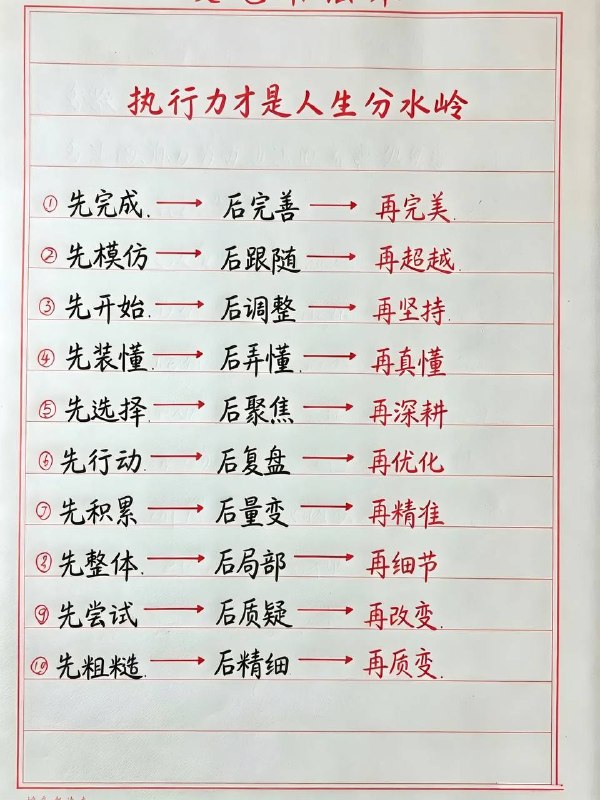 执行力才是人生分水岭
①先完成.→后完善→再完美.
②先模仿→后跟随→再超越.
③先开始.→后调整→再坚持.
④先装懂→后弄懂→再真懂
⑤先选择→后聚焦→再深耕
⑥先行动.→后复盘→再优化
⑦先积累→后量变→再精准
⑧先整体.→后局部→再细节
⑨先尝试→后质疑→再改变.
⑩先粗糙.→后精细→再质变.